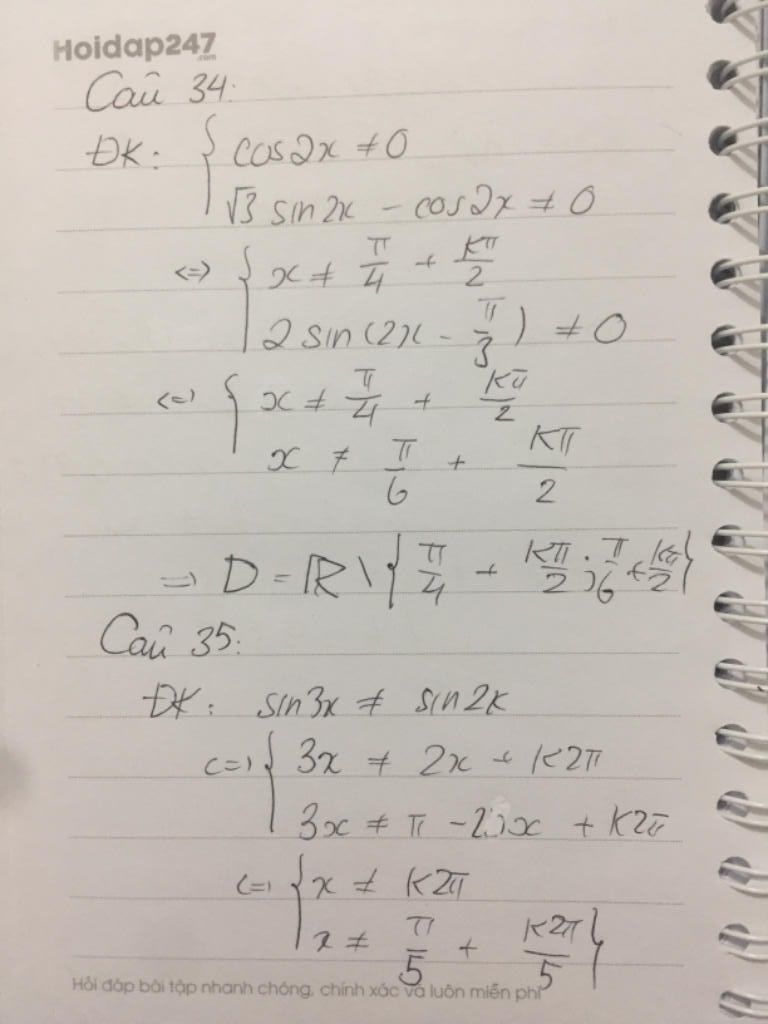 Hoidap247
.com
Câu 34:
ĐK: { cos2x ≠ 0
√3 sin2x - cos2x ≠ 0
<=> { x ≠ π/4 + kπ/2
2 sin(2x - π/3) ≠ 0
<=> { x ≠ π/4 + kπ/2
x ≠ π/6 + kπ/2
=> D = ℝ \ { π/4 + kπ/2 ; π/6 + kπ/2 }
Câu 35:
ĐK: sin3x ≠ sin2x
<=> { 3x ≠ 2x + k2π
3x ≠ π - 2x + k2π
<=> { x ≠ k2π
x ≠ π/5 + k2π/5 }
Hỏi đáp bài tập nhanh chóng, chính xác và luôn miễn phí